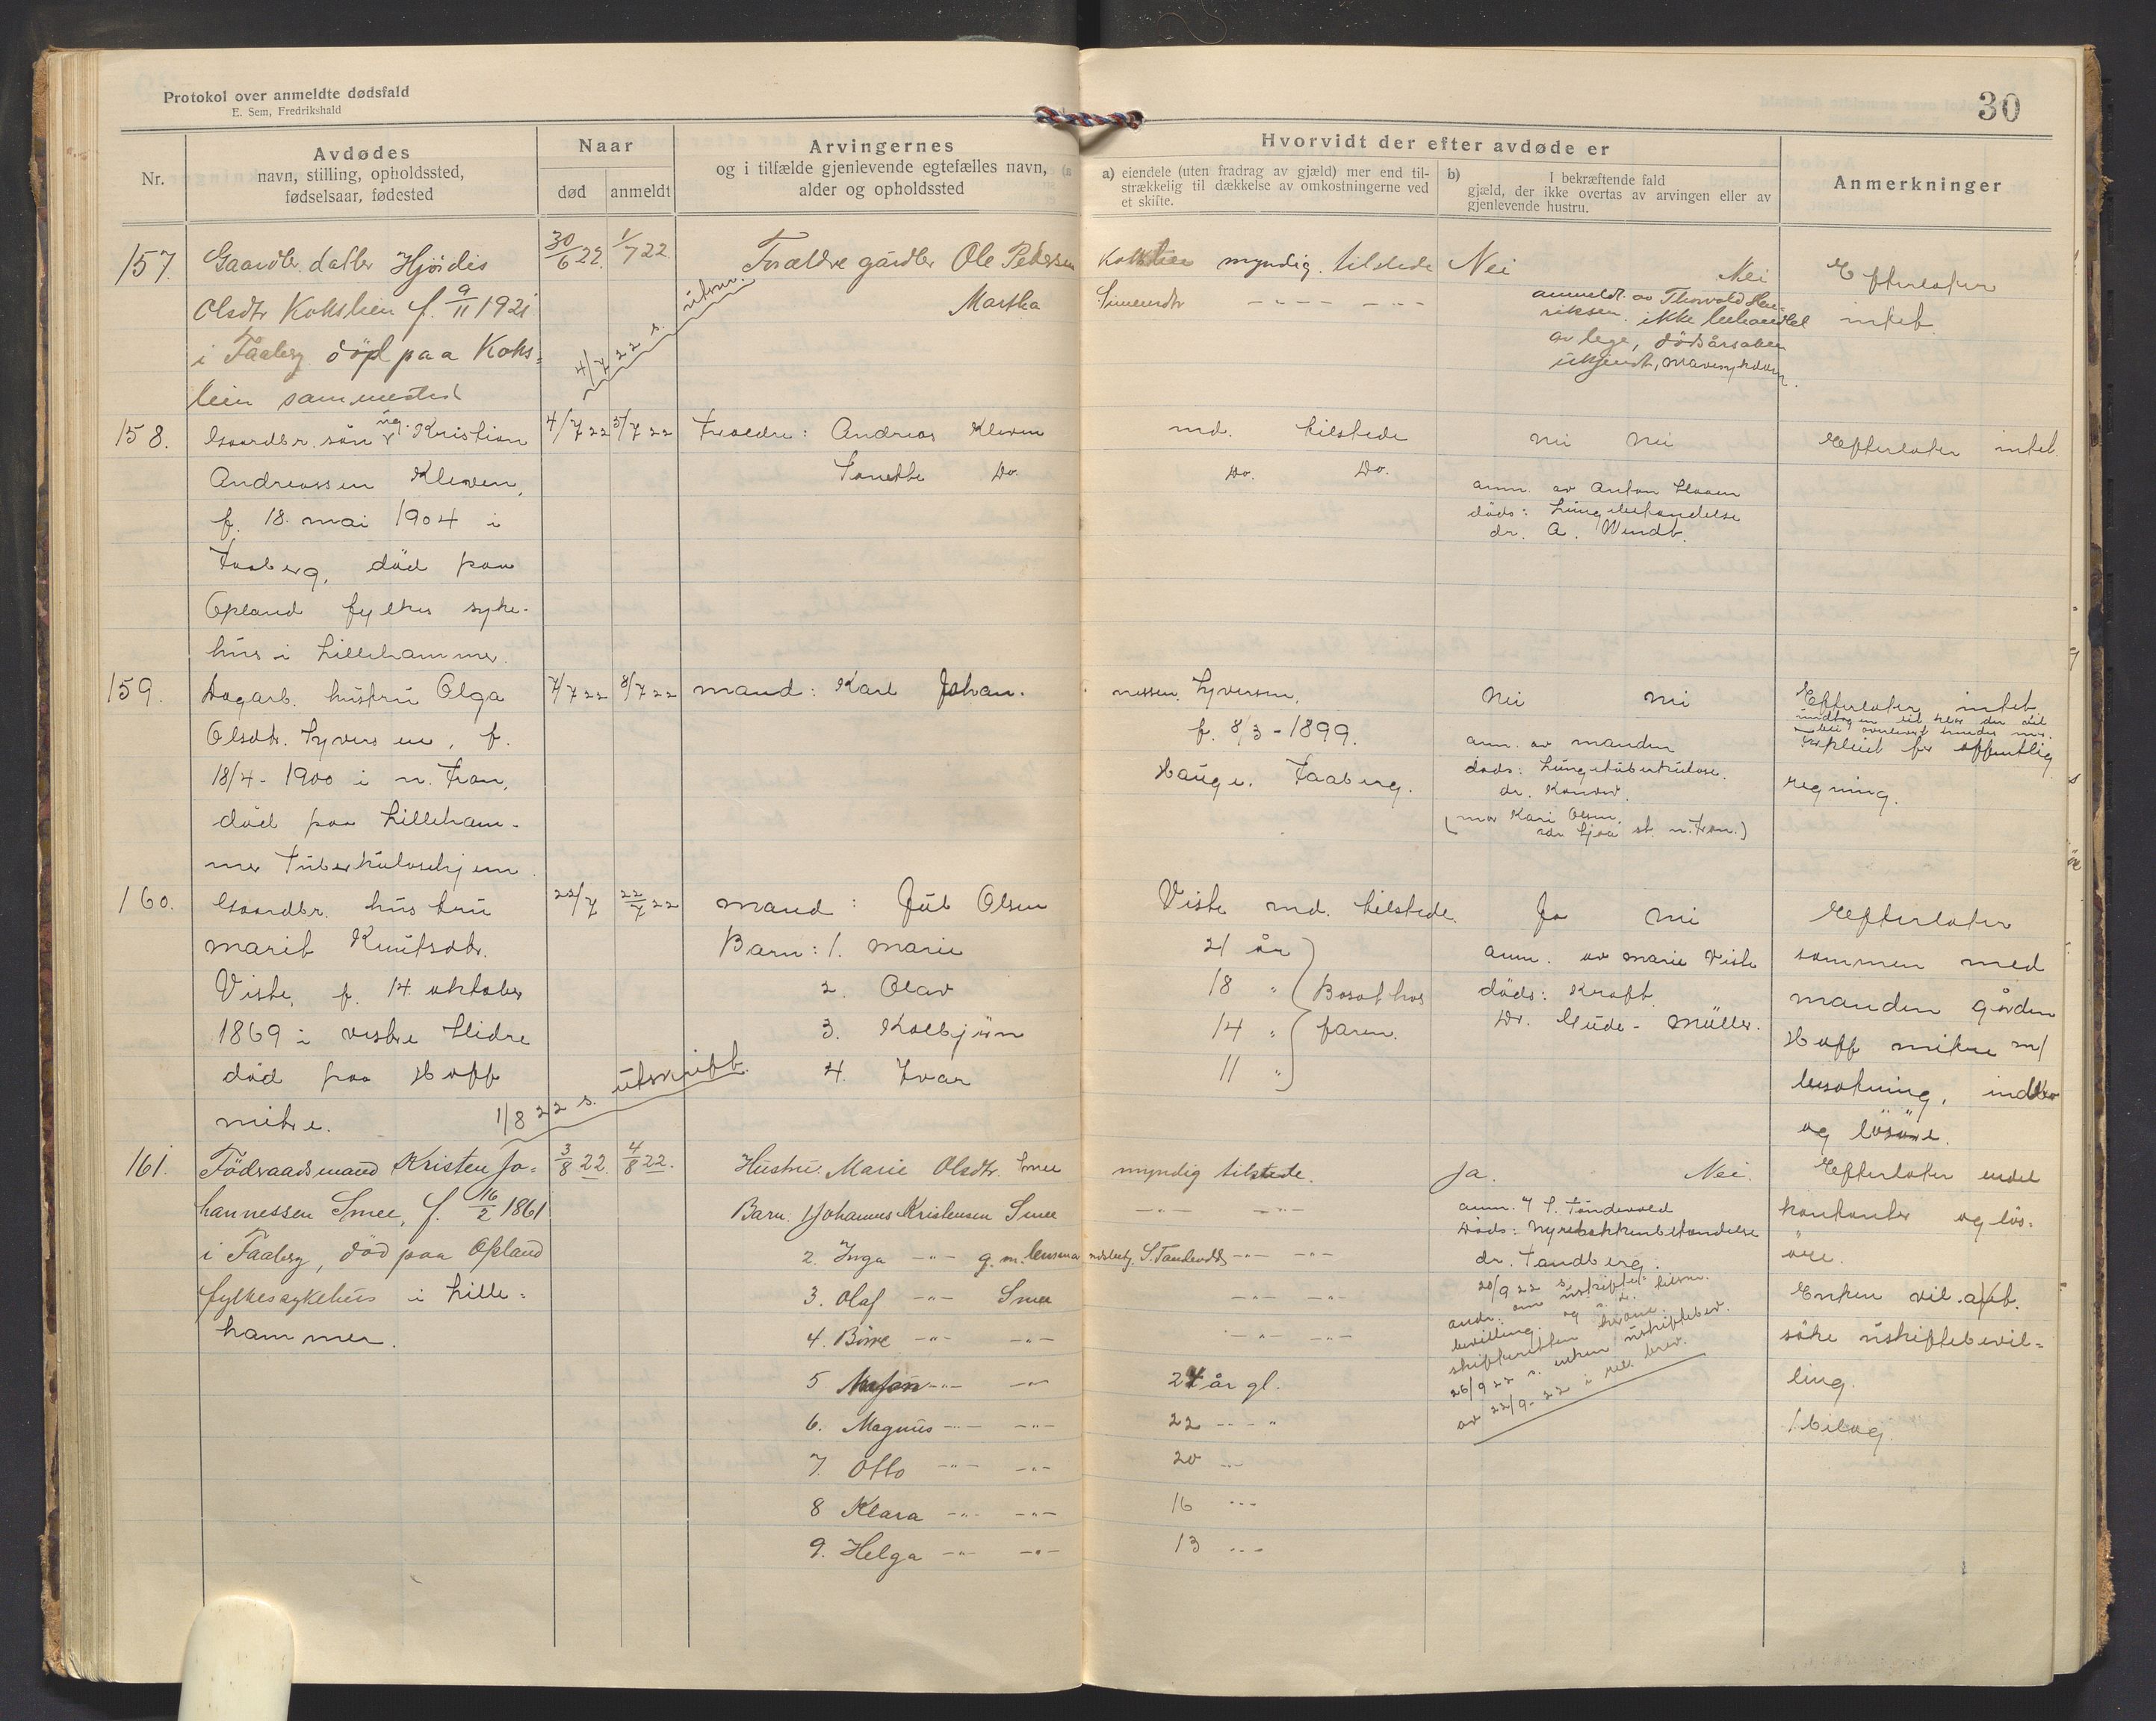 Protokol over anmeldte dødsfald
E. Sem, Fredrikshald
30
Nr.
Avdødes
navn, stilling, opholdssted,
fødselsaar, fødested
Naar
død
anmeldt
Arvingernes
og i tilfælde gjenlevende egtefælles navn,
alder og opholdssted
Hvorvidt der efter avdøde er
a) eiendele (uten fradrag av gjæld) mer end til-
strækkelig til dækkelse av omkostningerne ved
et skifte.
b)
I bekræftende fald
gjæld, der ikke overtas av arvingen eller av
gjenlevende hustru.
Anmerkninger
157. Gaardbr. datter Hjördis
Olsdtr Kokslien f. 9/11 1921
i Faaberg död paa Koks=
lien sammested
30/6 22. 1/7 22.
4/7 22 s. utskr.
Forældre gårdbr Ole Petersen
Martha
Kokslien myndig. tilstede
Simensdtr -"- -"-
Nei Nei
anmeldt av Thorvald Hen-
riksen. ikke behandlet
av lege, dödsårsaken
ukjendt, mavesykdom.
Efterlater
intet.
158. Gaardbr. sön ug. Kristian
Andreassen Kleven,
f. 18. mai 1904 i
Faaberg, död paa
Opland fylkes syke-
hus i Lillehammer.
4/7 22 5/7 22
Foreldre: Andreas Kleven
Do.
md. tilstede
Do. Do.
Nei Nei
anm. av Anton
döds: Lungebetændelse
dr. A. Wendt.
Efterlater intet.
159. Dagarb. hustru Olga
Olsdtr. Syversen, f.
18/4 - 1900 i n. Fron,
död paa Lilleham-
mer Tuberkulosehjem.
7/7 22 8/7 22
mand: Karl Johan-
nessen Syversen,
f. 8/3 - 1899.
Hauge. Faaberg.
Nei Nei
anm. av manden
döds: Lungetuberkulose.
dr.
(mor Kari Olsen,
st. n. Fron.)
Efterlater intet
forpleiet for offentlig
regning.
160. Gaardbr. hustru
Marit Knutsdtr.
Viste, f. 14. oktober
1869 i vestre Slidre
död paa Hoff
nitre.
1/8 22 s. utskrift.
22/7 22/7 22
mand: Jul Olsen
Barn: 1. Marie
2. Olav
3. Kolbjörn
4. Ivar
Viste md. tilstede.
21 år
18 "
14 "
11 "
Bosat hos
faren.
Ja Nei
anm. av Marie Viste
döds: Kræft.
Dr. Gude-Müller.
Efterlater
sammen med
manden gården
Hoff nitre m/
besætning, indbo
og lösöre.
161. Födraadsmand Kristen Jo=
hannessen Smee, f. 16/2 1861
i Faaberg, död paa Opland
fylkessykehus i Lille=
hammer.
3/8 22. 4/8 22.
Hustru: Marie Olsdtr. Smee
Barn. 1 Johannes Kristensen Smee
2. Inga -"- g. m. lensma ndsbetj. S. Tandevold -"- -"-
3. Olaf -"- Smee
4. Börre -"- -"-
5 -"- -"-
6. Magnus -"- -"-
7. Otto -"- -"-
8 Klara -"- -"-
9. Helga -"- -"-
myndig tilstede.
-"- -"-
-"- -"-
-"- -"-
24 år gl.
22 -"- "
20 -"-
16 -"-
13 -"-
Ja. Nei.
anm. S. Tandevold
Döds: Nyrebækkenbetændelse
dr. Tandberg.
20/9 22 s.
andr. om uskiftet
bevilling. og
skifteretten
26/9 22 s. enken uskiftebev.
av 22/9-22 i rek. brev.
Efterlater endel
kontanter og lös=
öre.
Enken vil
söke uskiftebevil=
ling.
1 bilag.